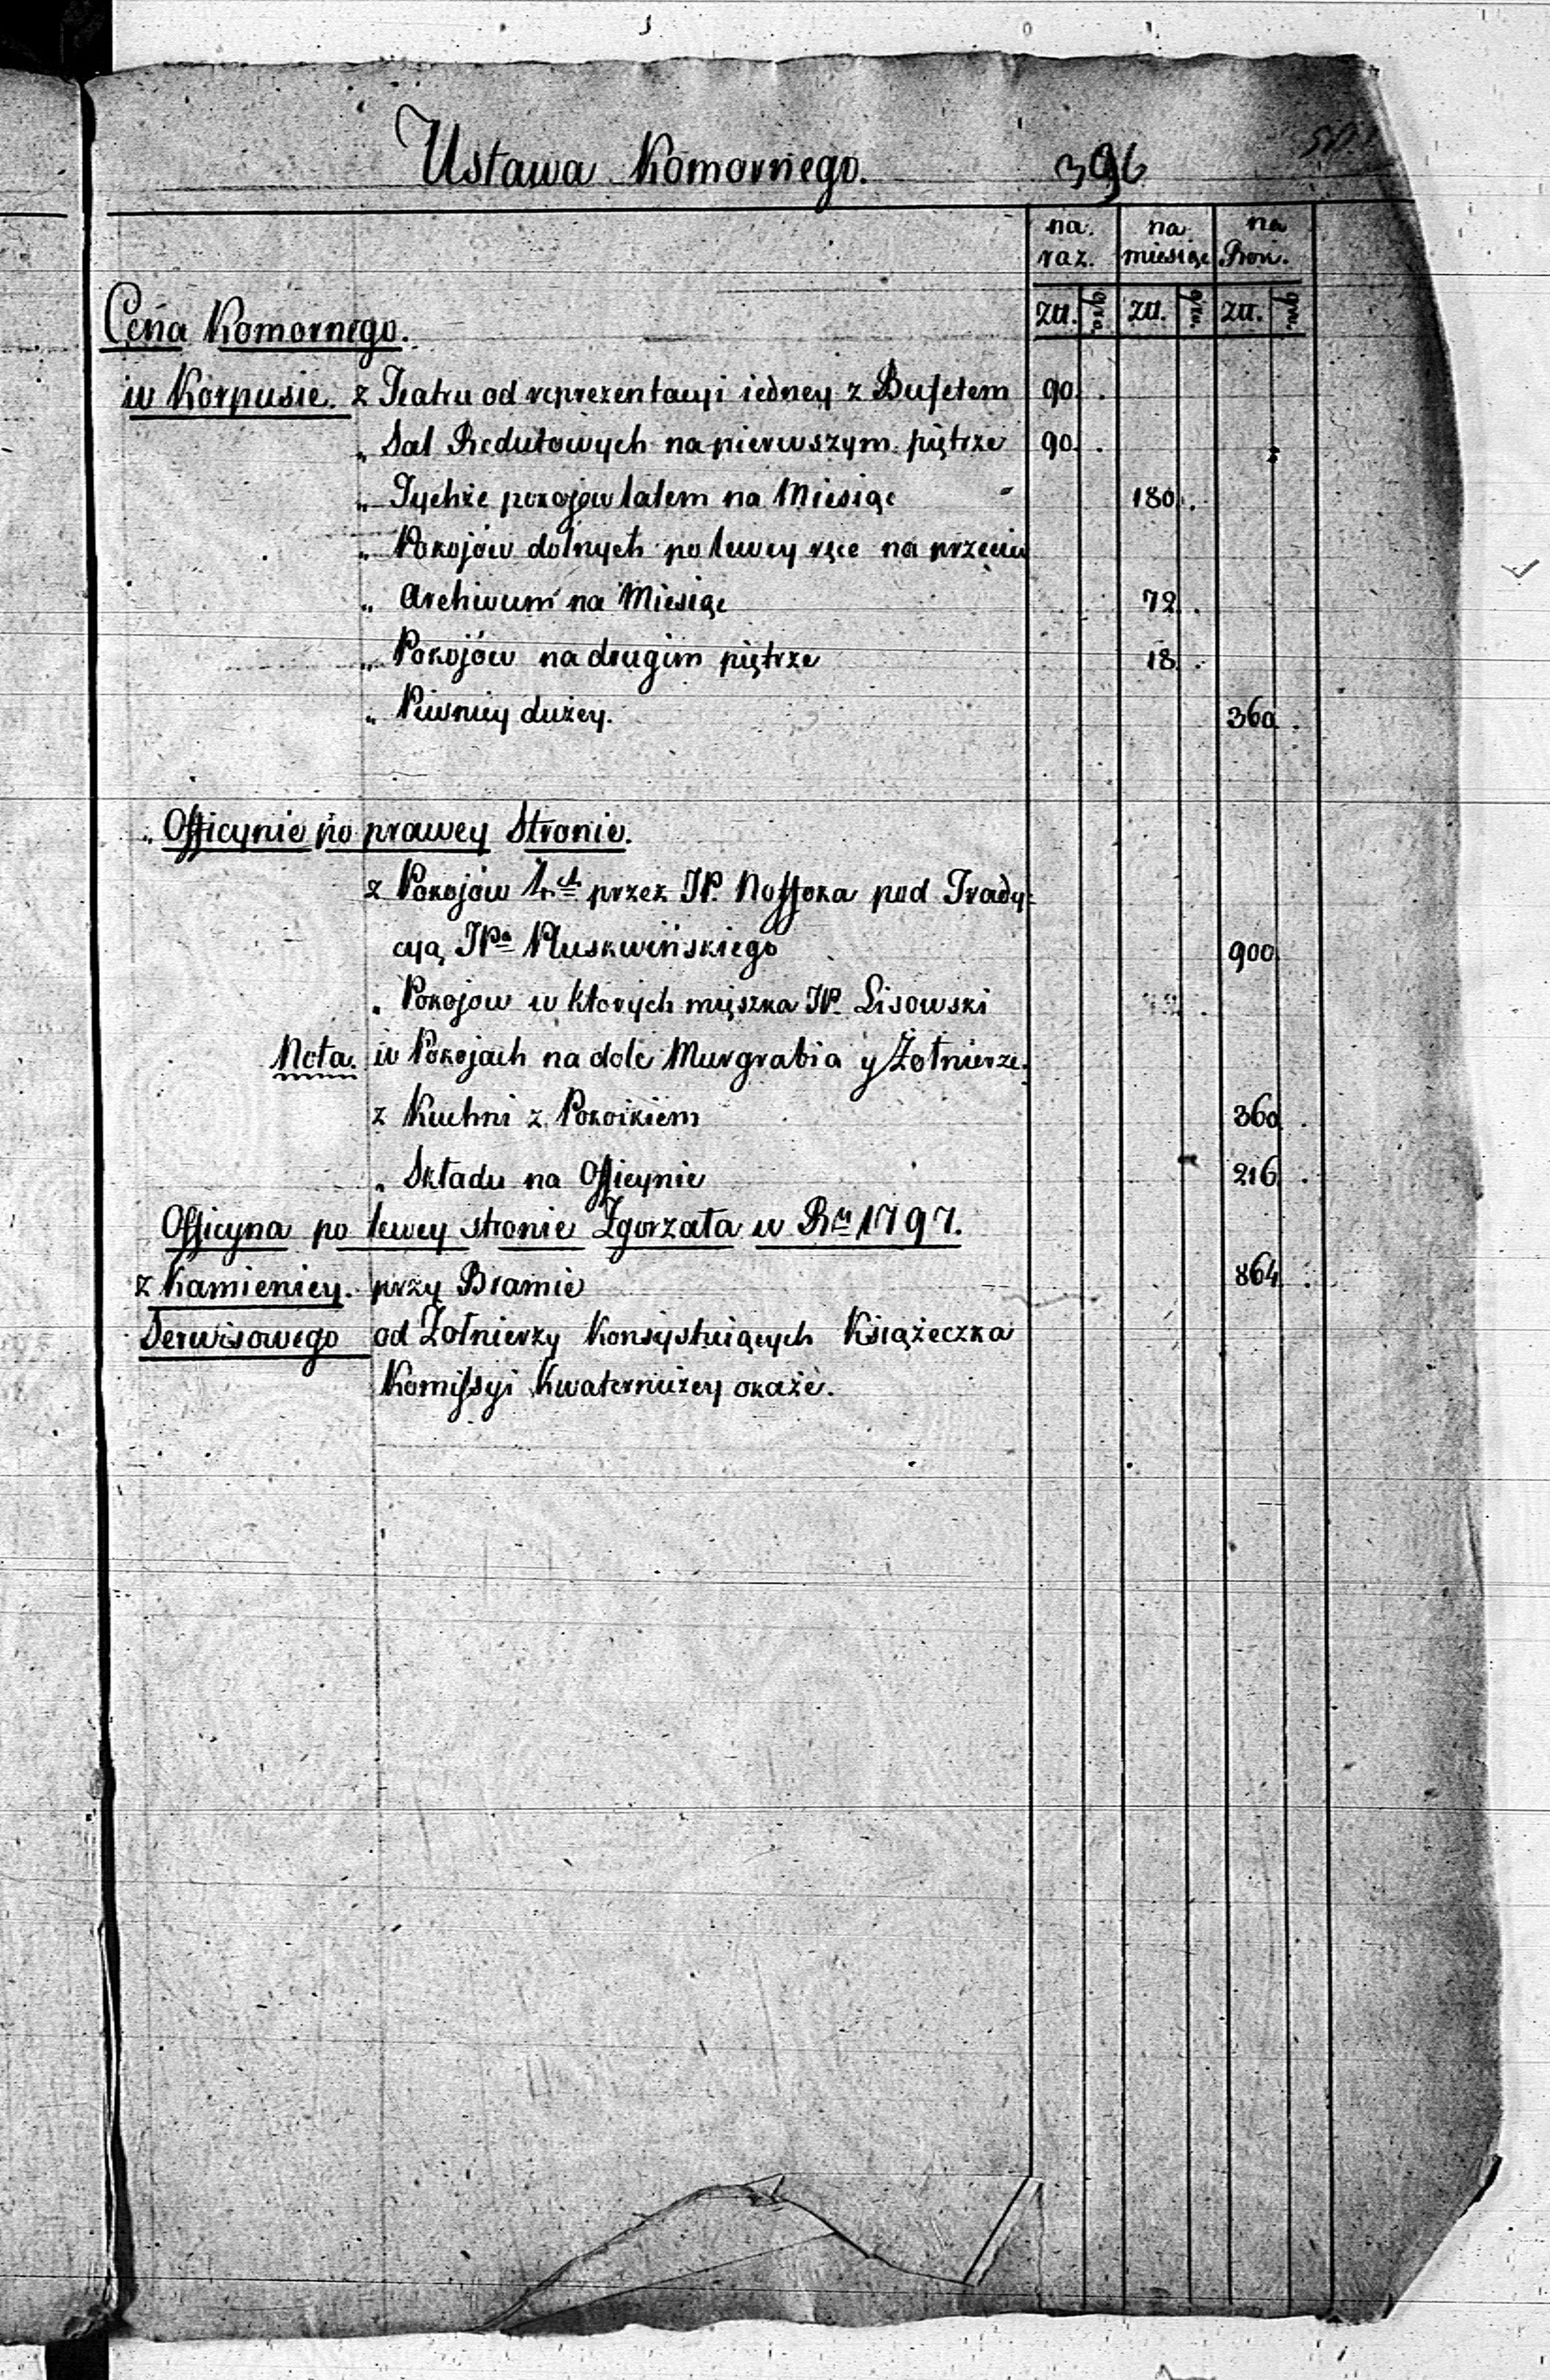 Ustawa Komornego. 396
na raz. na miesiąc na Rok.
Złł. gro. Złł. gro. Złł. gro.
Cena Komornego.
w Korpusie. z Teatru od reprezentacyi iedney z Bufetem 90 .
„ Sal Redutowych na pierwszym piętrze 90 .
„ Tychże pokojow latem na Miesiąc 180 .
„ Pokojow dolnych po lewey ręce na przeciw
„ Archiwum na Miesiąc 72 .
„ Pokojów na drugim piętrze 18 .
„ Piwnicy dużey. 360 .
„ Officynie po prawey Stronie.
z Pokojów 4ch przez JP. Nossoka pod Trady=
cyą JPa Pluskwińskiego 900
„ Pokojow w ktorych mięszka JP. Lisowski
Nota. w Pokojach na dole Murgrabia y Żołnierze.
z Kuchni z Pokoikiem 360 .
„ Składu na Officynie 216 .
Officyna po lewey stronie Zgorzała w Ru 1797.
z Kamienicy. przy Bramie 864 .
Serwisowego od Żołnierzy Konsystuiących Książeczka
Komissyi Kwaterniczey okaże.